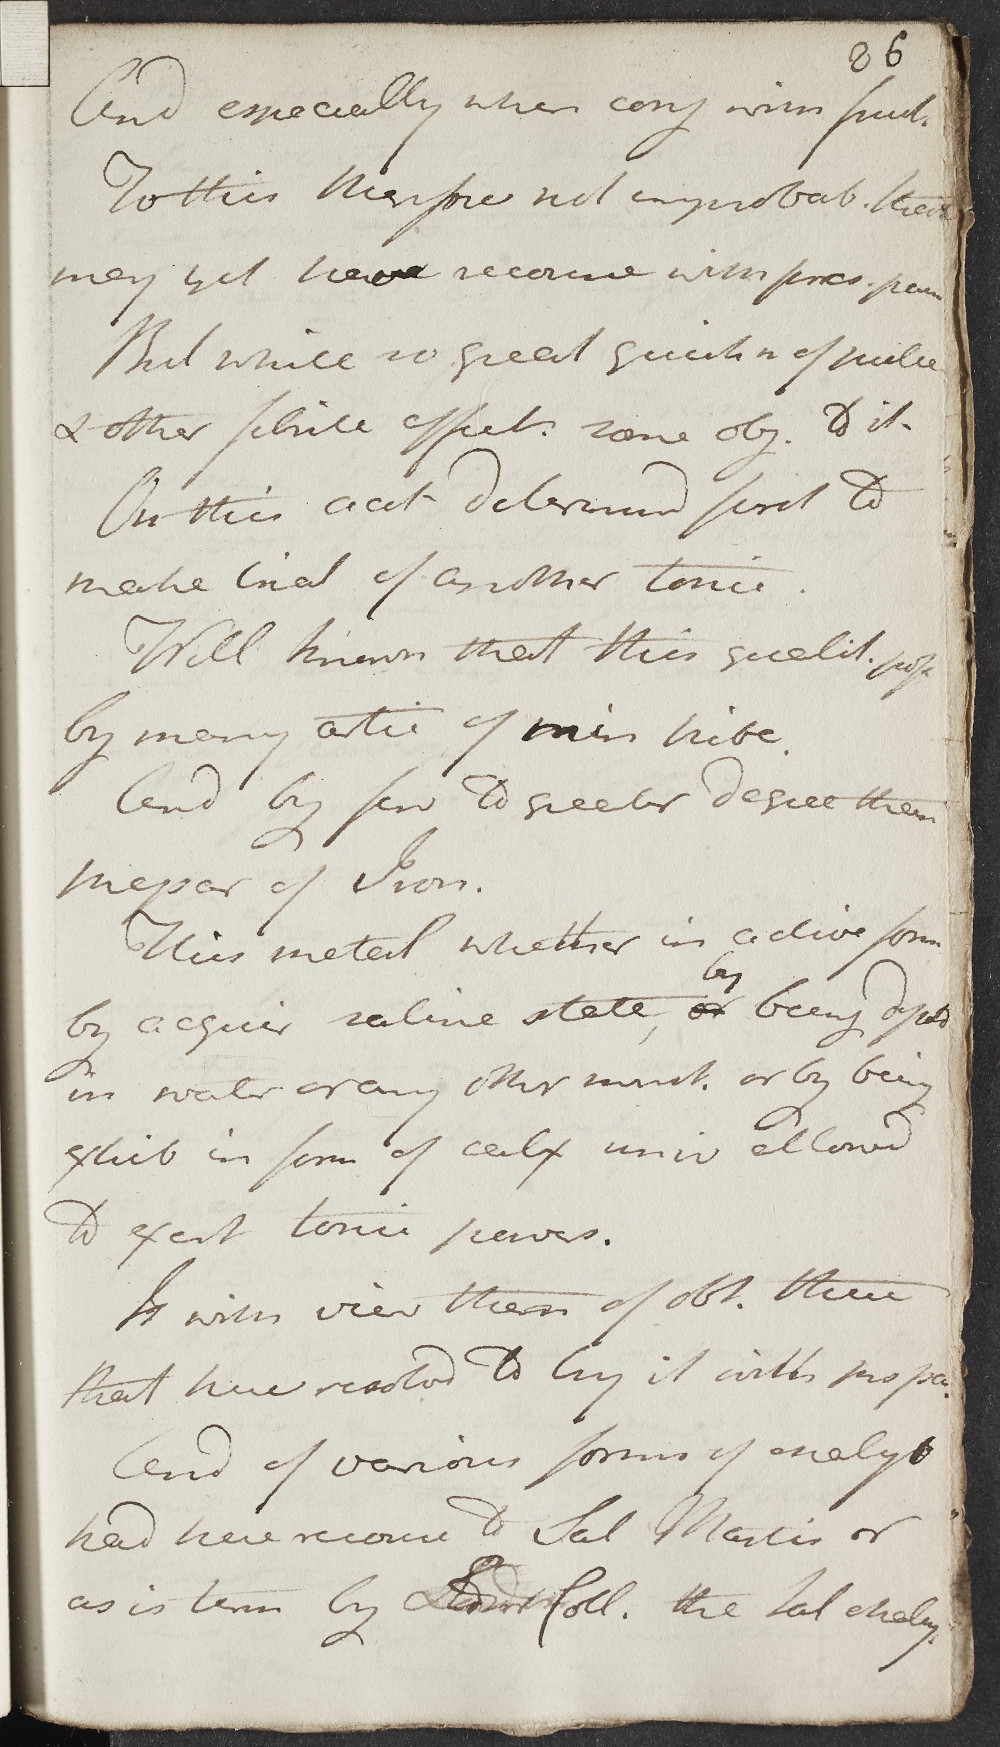 86
And especially when conj with
To this therfore not improbab. that
may yet have recourse with pres. pain
But while so great quickn of pulse
& other febrile affect. some obj. to it.
On this acct determined first to
make trial of another tonic.
Well known that this qualit. poss
by many artic of min tribe.
And by few to greater degree than
prepar of Iron.
This metal whether in active form
by acquir saline state, by being
in water or any other menst. or by being
exhib in form of calx univ allowed
to exert tonic powers.
It with view then of obt. these
that here resolved to try it with pres pa.
And of various forms of chalyb
had here recourse to Sal Martis or
as is term by Coll. the Sal chaly.